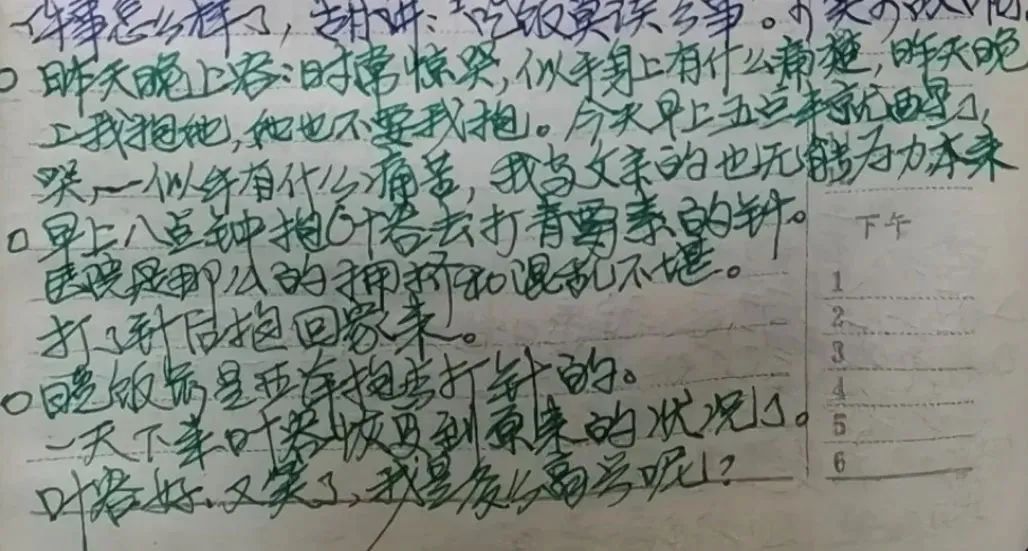 件事怎么样了，吃饭莫谈公事。
○昨天晚上容：时常惊哭，似乎身上有什么痛楚，昨天晚
上我抱他，他也不要我抱。今天早上五点半就醒了，
哭，一似乎有什么痛苦，我当父亲的也无能为力本来
○早上八点钟抱叶容去打青霉素的针。
医院是那么的拥挤和混乱不堪。
打了针后抱回家来。
○晚饭后是抱去打针的。
一天下来叶容恢复到原来的状况了。
叶容好，又笑了，我是多么高兴呢！？
下午
1
2
3
4
5
6